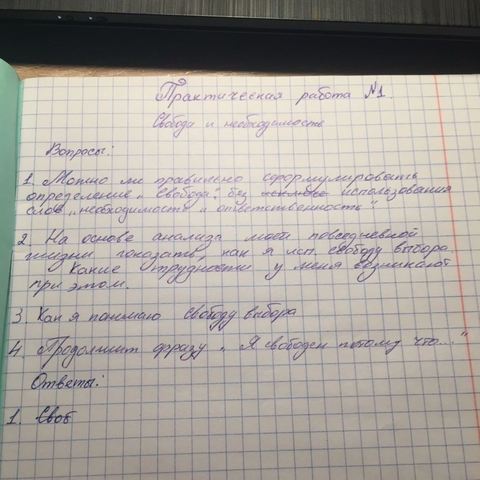 Практическая работа №1.
Свобода и необходимость
Вопросы:
1. Можно ли правильно сформулировать
определение „Свобода". Без использования
слов „необходимость и ответственность"
2. На основе анализа моей повседневной
жизни показать, как я исп. свободу выбора.
Какие трудности у меня возникают
при этом.
3. Как я понимаю свободу выбора
4. Продолжит фразу „Я свободен потому что..."
Ответы:
1. Своб